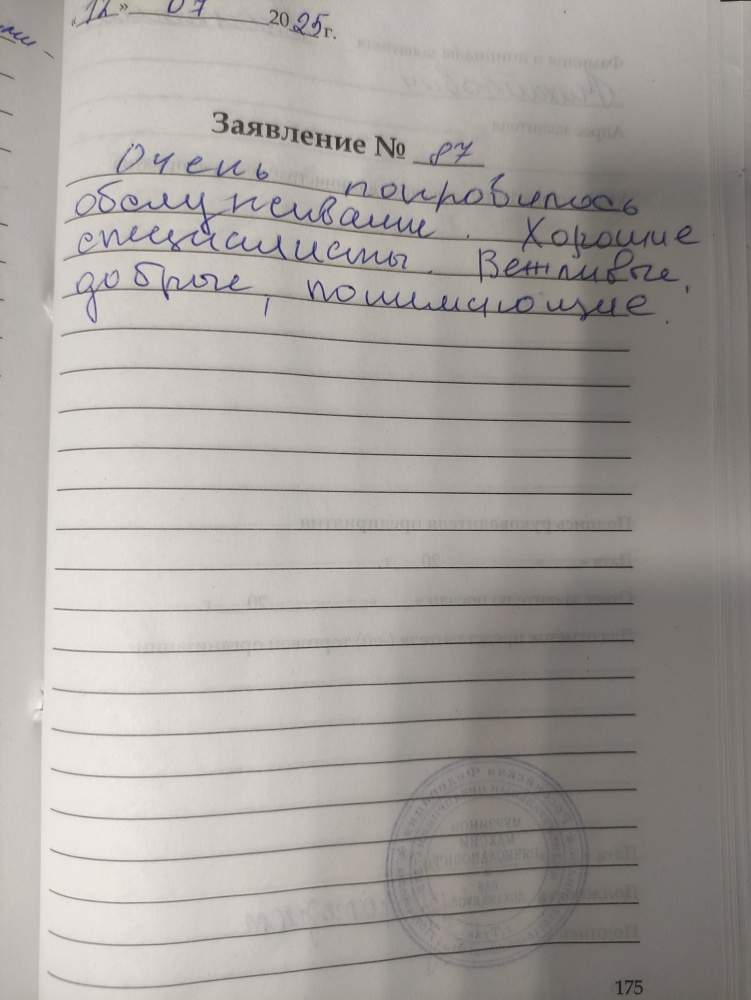 «12» 07 2025 г.
Заявление № 87
Очень понравилось
обслуживание. Хорошие
специалисты. Вежливые,
добрые, понимающие.
175